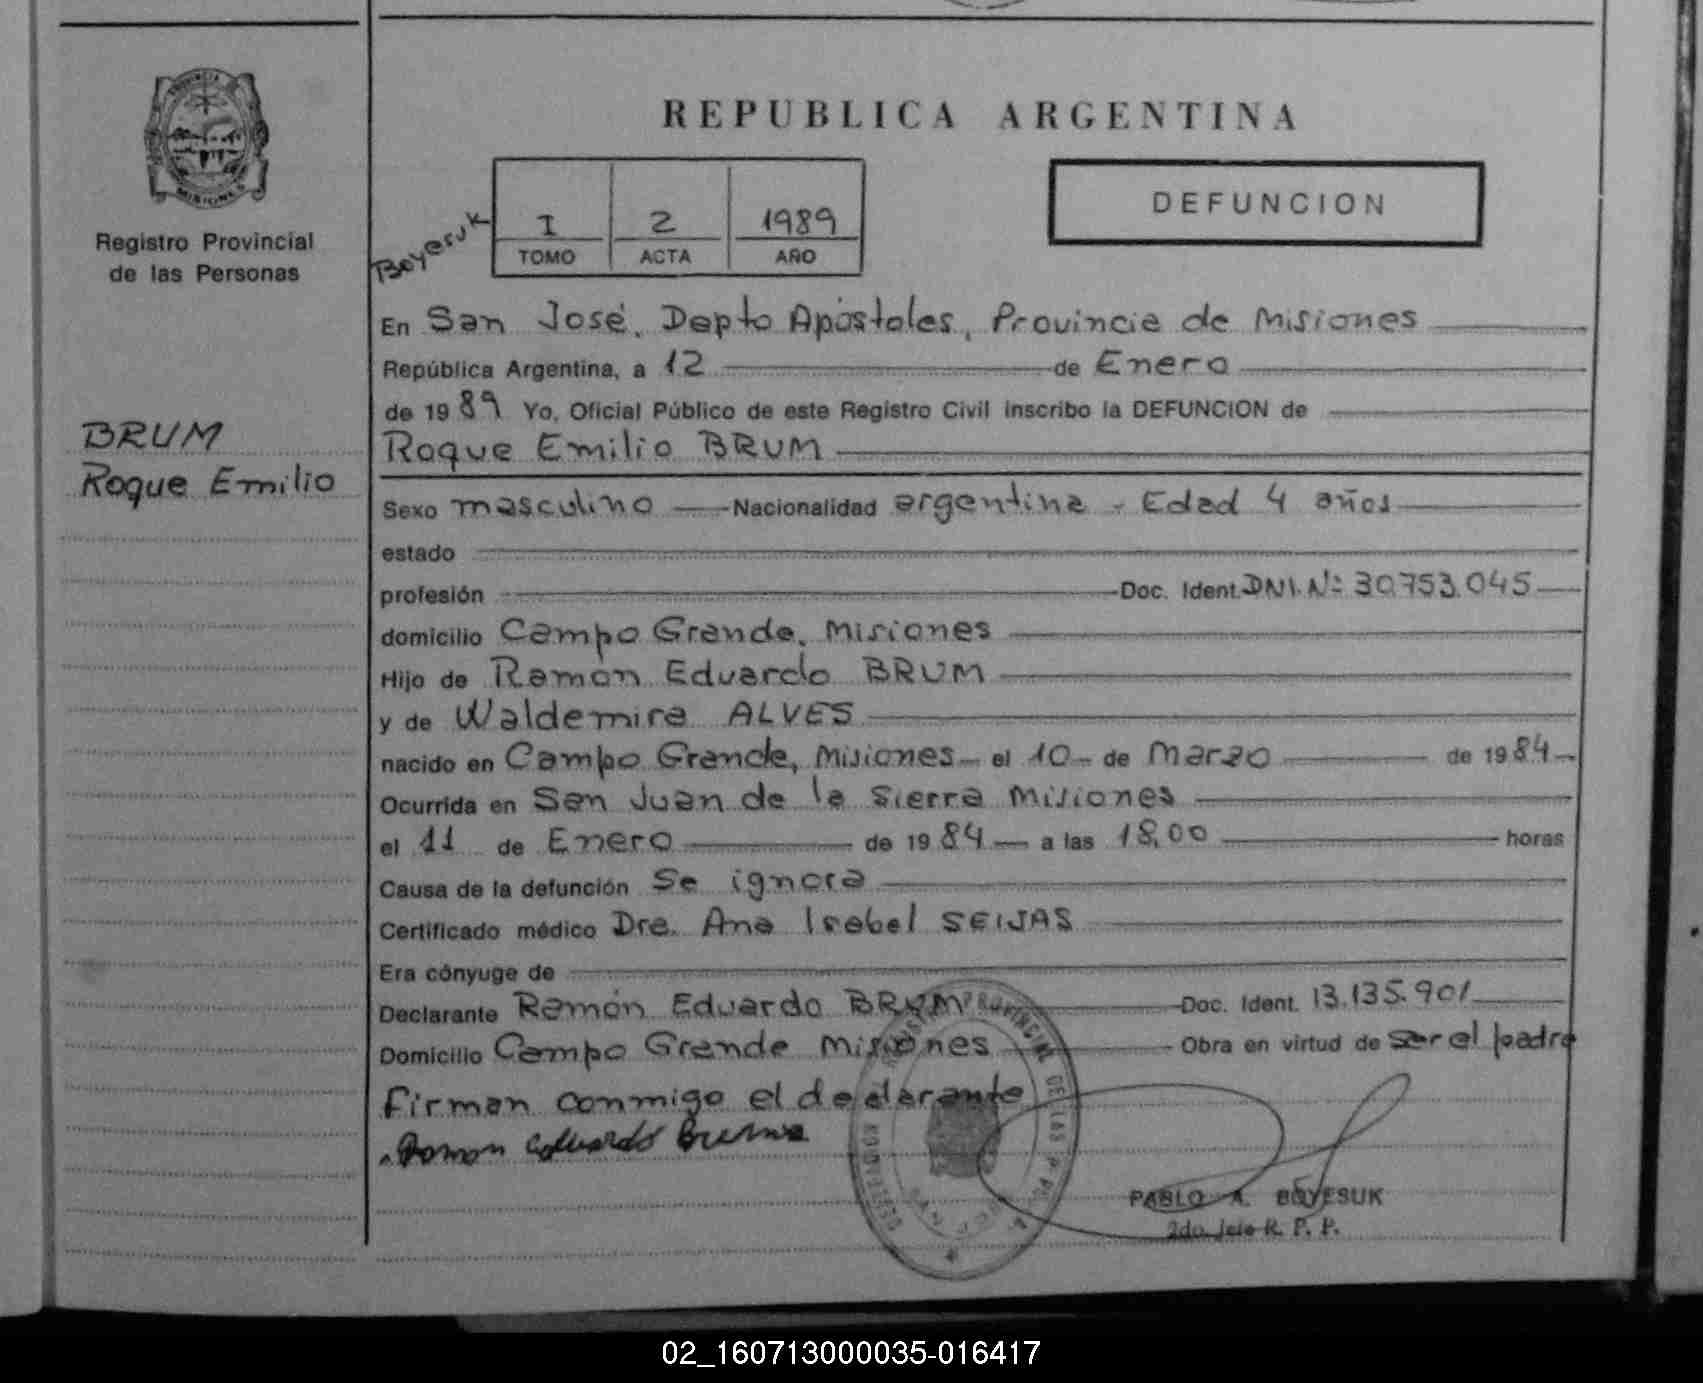 PROVINCIA
MISIONES
Registro Provincial
de las Personas
BRUM
Roque Emilio
REPUBLICA ARGENTINA
Boyesuk
I 2 1989
TOMO ACTA AÑO
DEFUNCION
En San José, Depto Apóstoles, Provincia de Misiones
República Argentina, a 12 de Enero
de 1989 Yo, Oficial Público de este Registro Civil inscribo la DEFUNCION de
Roque Emilio BRUM
Sexo masculino Nacionalidad argentina - Edad 4 años
estado
profesión Doc. Ident. DNI. Nº 30.753.045
domicilio Campo Grande, Misiones
Hijo de Ramón Eduardo BRUM
y de Waldemira ALVES
nacido en Campo Grande, Misiones - el 10 - de Marzo de 1984
Ocurrida en San Juan de la Sierra Misiones
el 11 de Enero de 1984 a las 18,00 horas
Causa de la defunción Se ignora
Certificado médico Dra. Ana Isabel SEIJAS
Era cónyuge de
Declarante Ramón Eduardo BRUM Doc. Ident. 13.135.901
Domicilio Campo Grande Misiones Obra en virtud de ser el padre
Firman conmigo el declarante
Ramon Eduardo
PROVINCIAL DE LAS
PABLO A. BOYESUK
2do. Jefe R. P. P.
02_160713000035-016417